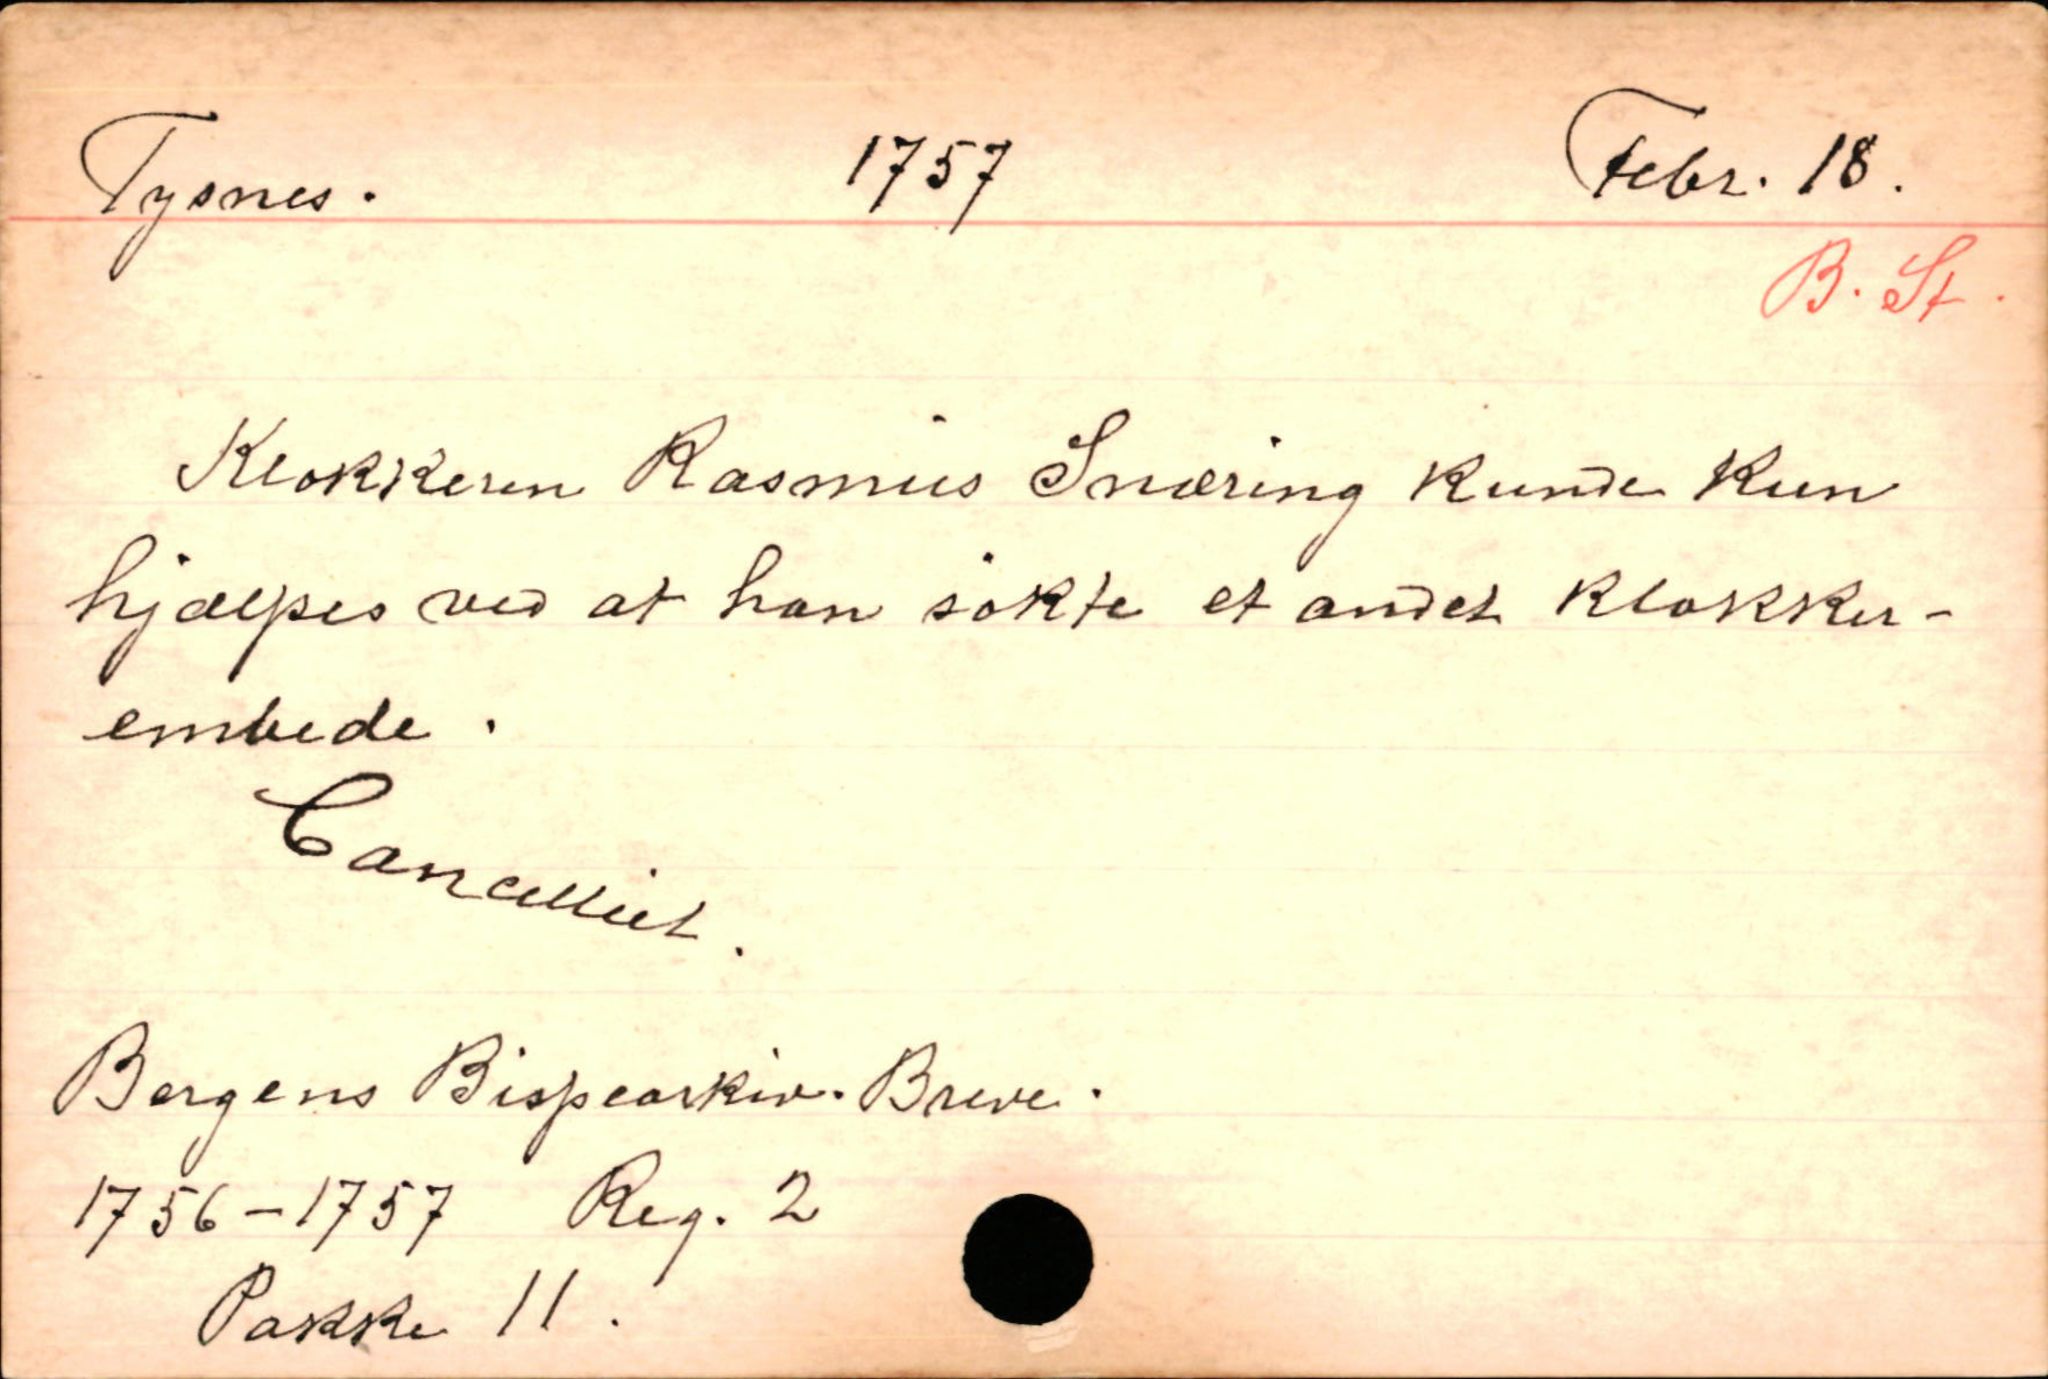 Tysnes. 1757 Febr. 18.
B. St.
Klokkeren Rasmus Snæring kunde kun
hjælpes ved at han søkte et andet klokker-
embede.
Cancelliet.
Bergens Bispearkiv. Breve.
1756-1757 Reg. 2
Pakke 11.